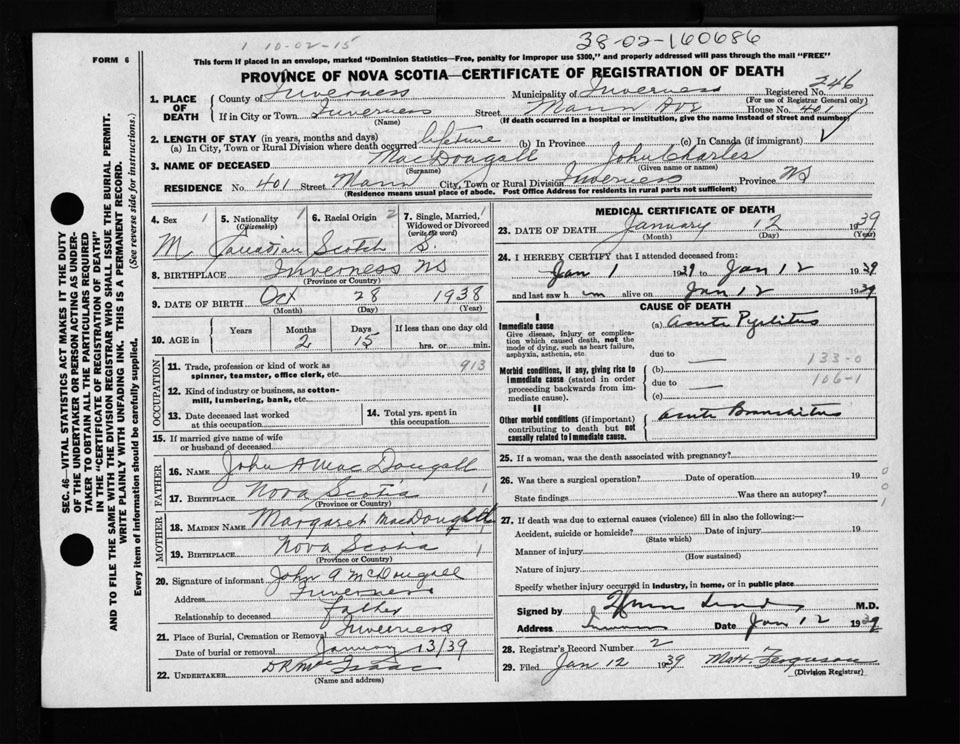 1 10-02-15
38-02-160686
FORM 6
This form if placed in an envelope, marked "Dominion Statistics—Free, penalty for improper use $300," and properly addressed will pass through the mail "FREE"
PROVINCE OF NOVA SCOTIA—CERTIFICATE OF REGISTRATION OF DEATH
SEC. 46—VITAL STATISTICS ACT MAKES IT THE DUTY
OF THE UNDERTAKER OR PERSON ACTING AS UNDER-
TAKER TO OBTAIN ALL THE PARTICULARS REQUIRED
IN THE "CERTIFICATE OF REGISTRATION OF DEATH"
AND TO FILE THE SAME WITH THE DIVISION REGISTRAR WHO SHALL ISSUE THE BURIAL PERMIT.
WRITE PLAINLY WITH UNFADING INK. THIS IS A PERMANENT RECORD.
Every item of information should be carefully supplied. (See reverse side for instructions.)
1. PLACE OF DEATH County of Inverness Municipality of Inverness Registered No. 246
(For use of Registrar General only)
If in City or Town Inverness Street Mann Ave House No. 401
(Name) (If death occurred in a hospital or institution, give the name instead of street and number)
2. LENGTH OF STAY (in years, months and days)
(a) In City, Town or Rural Division where death occurred lifetime (b) In Province (c) In Canada (if immigrant)
3. NAME OF DECEASED MacDougall John Charles
(Surname) (Given name or names)
RESIDENCE No. 401 Street Mann City, Town or Rural Division Inverness Province NS
(Residence means usual place of abode. Post Office Address for residents in rural parts not sufficient)
4. Sex 1 5. Nationality 1 (Citizenship) 6. Racial Origin 2 7. Single, Married, 1 Widowed or Divorced (write the word)
M. Canadian Scotch S.
8. BIRTHPLACE Inverness NS
(Province or Country)
9. DATE OF BIRTH Oct 28 1938
(Month) (Day) (Year)
10. AGE in Years Months Days If less than one day old
2 15 hrs. or min.
OCCUPATION
11. Trade, profession or kind of work as spinner, teamster, office clerk, etc. 913
12. Kind of industry or business, as cotton-mill, lumbering, bank, etc.
13. Date deceased last worked at this occupation 14. Total yrs. spent in this occupation
15. If married give name of wife or husband of deceased
FATHER
16. NAME John A MacDougall
17. BIRTHPLACE Nova Scotia 1
(Province or Country)
MOTHER
18. MAIDEN NAME Margaret MacDougall
19. BIRTHPLACE Nova Scotia 1
(Province or Country)
20. Signature of informant John A McDougall
Address Inverness
Relationship to deceased Father
21. Place of Burial, Cremation or Removal Inverness
Date of burial or removal January 13/39
22. UNDERTAKER D R MacIsaac
(Name and address)
MEDICAL CERTIFICATE OF DEATH
23. DATE OF DEATH January 12 1939
(Month) (Day) (Year)
24. I HEREBY CERTIFY that I attended deceased from:
Jan 1 1939 to Jan 12 1939
and last saw him alive on Jan 12 1939
CAUSE OF DEATH
I
Immediate cause (a) Acute Pyelitis
Give disease, injury or complication which caused death, not the mode of dying, such as heart failure, asphyxia, asthenia, etc.
due to
Morbid conditions, if any, giving rise to immediate cause (stated in order proceeding backwards from immediate cause).
(b) 133-0
due to 106-1
(c)
II
Other morbid conditions (if important) contributing to death but not causally related to immediate cause.
Acute Bronchitis
25. If a woman, was the death associated with pregnancy?
26. Was there a surgical operation? Date of operation 19 0
State findings Was there an autopsy? 0 1
27. If death was due to external causes (violence) fill in also the following:—
Accident, suicide or homicide? Date of injury 19
(State which)
Manner of injury
(How sustained)
Nature of injury
Specify whether injury occurred in industry, in home, or in public place
Signed by M.D.
Address Date Jan 12 1939
28. Registrar's Record Number 2
29. Filed Jan 12 1939 Ferguson
(Division Registrar)